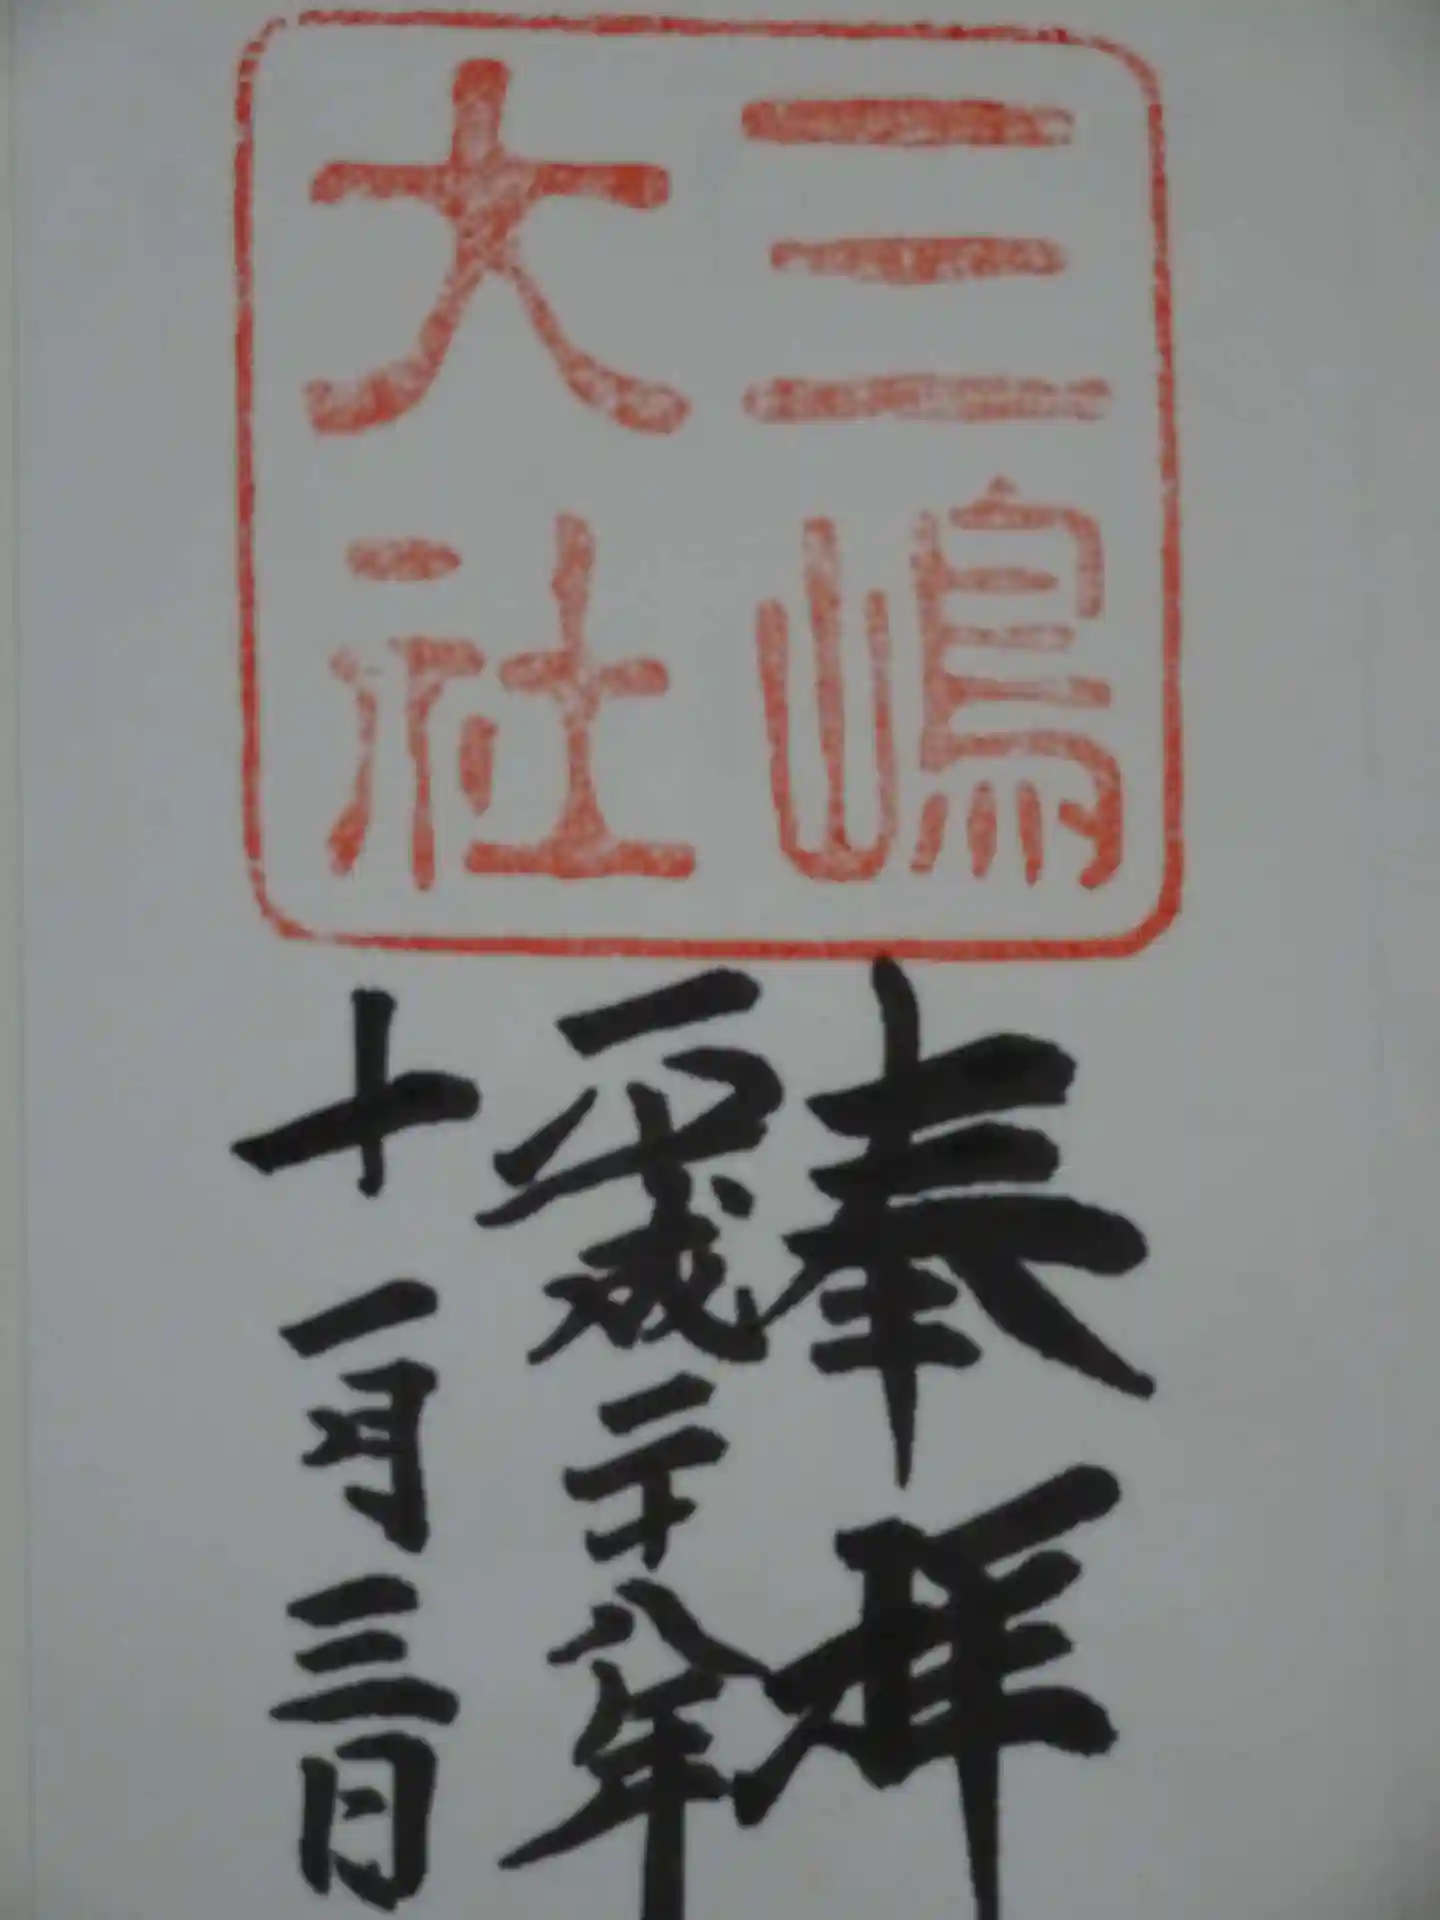 三嶋
大社
奉拝
平成二十八年
十一月三日